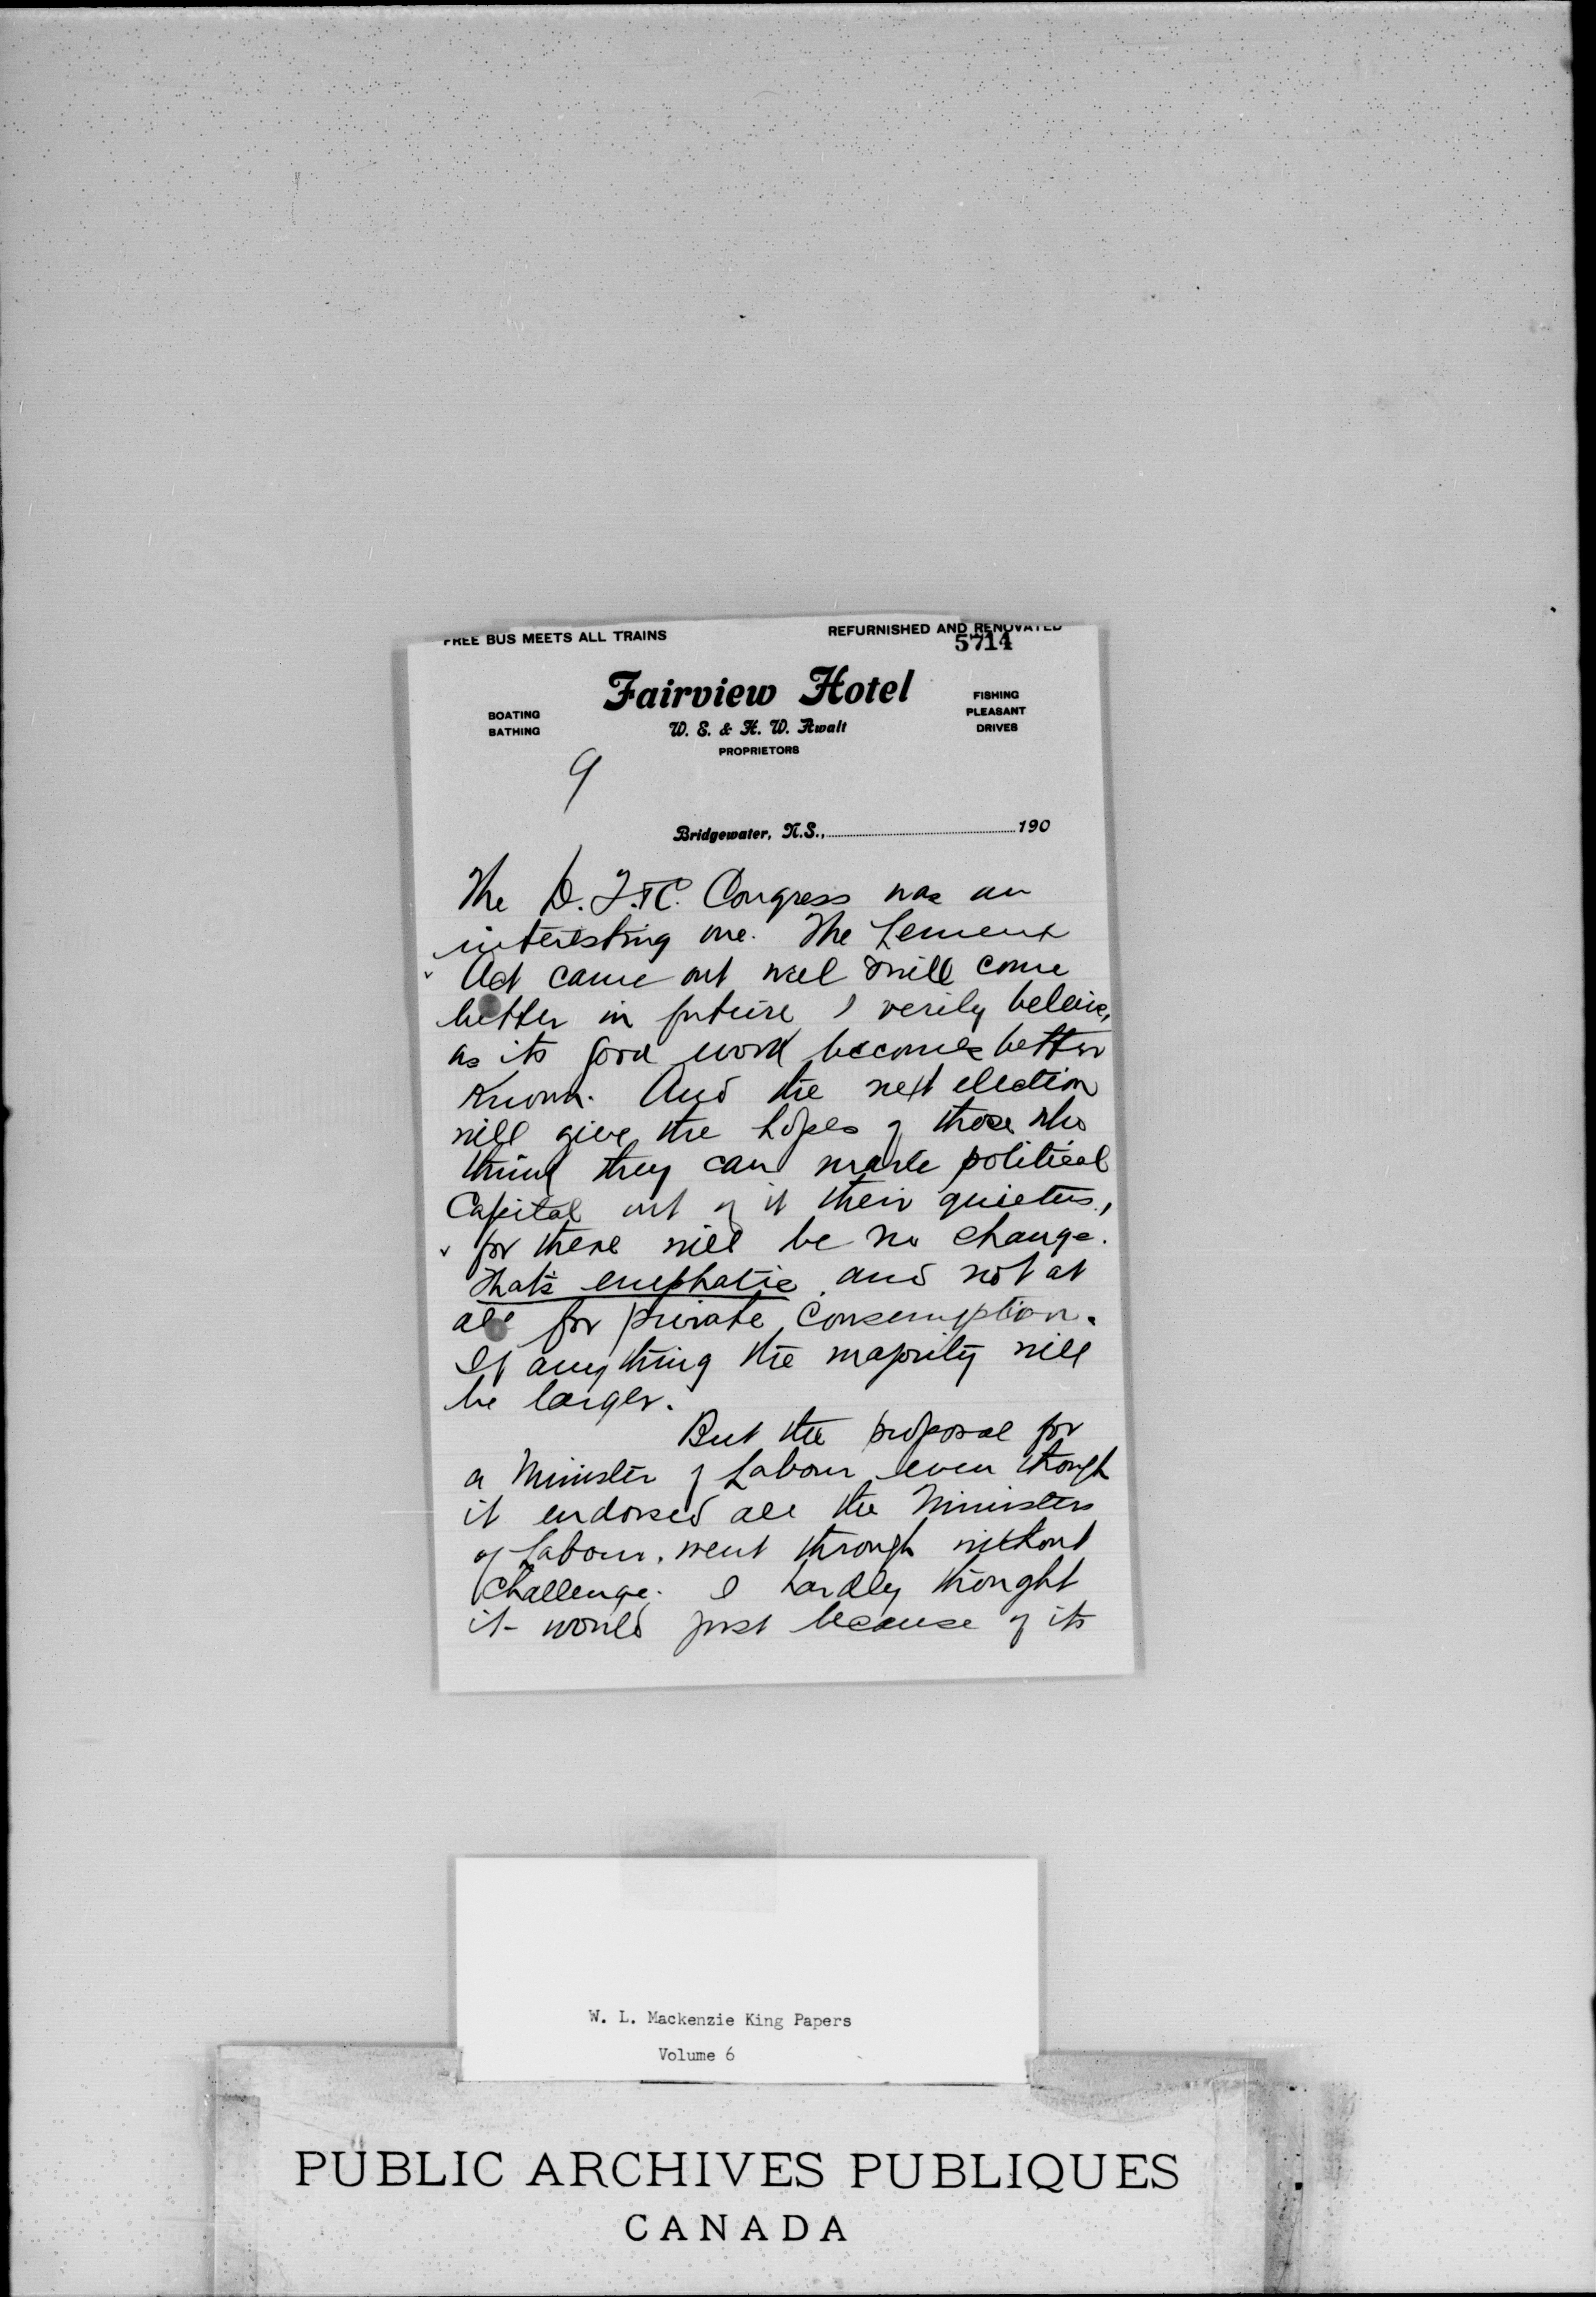 FREE BUS MEETS ALL TRAINS
REFURNISHED AND RENOVATED
5714
Fairview Hotel
BOATING
BATHING
W. S. & H. W. Awalt
PROPRIETORS
FISHING
PLEASANT
DRIVES
9
Bridgewater, N.S., 190
The D. T. & C. Congress was an
interesting one. The Lemieux
Act came out well & will come
better in future I verily beleive,
as its good work becomes better
known. And the next election
will give the hopes of those who
think they can make political
Capital out of it their quietus,
for there will be no change.
That's emphatic and not at
all for private consumption.
If anything the majority will
be larger.
But the proposal for
a Minister of Labour even though
it endorsed all the Ministers
of Labour, went through without
challenge. I hardly thought
it would just because of its
W. L. Mackenzie King Papers
Volume 6
PUBLIC ARCHIVES PUBLIQUES
CANADA